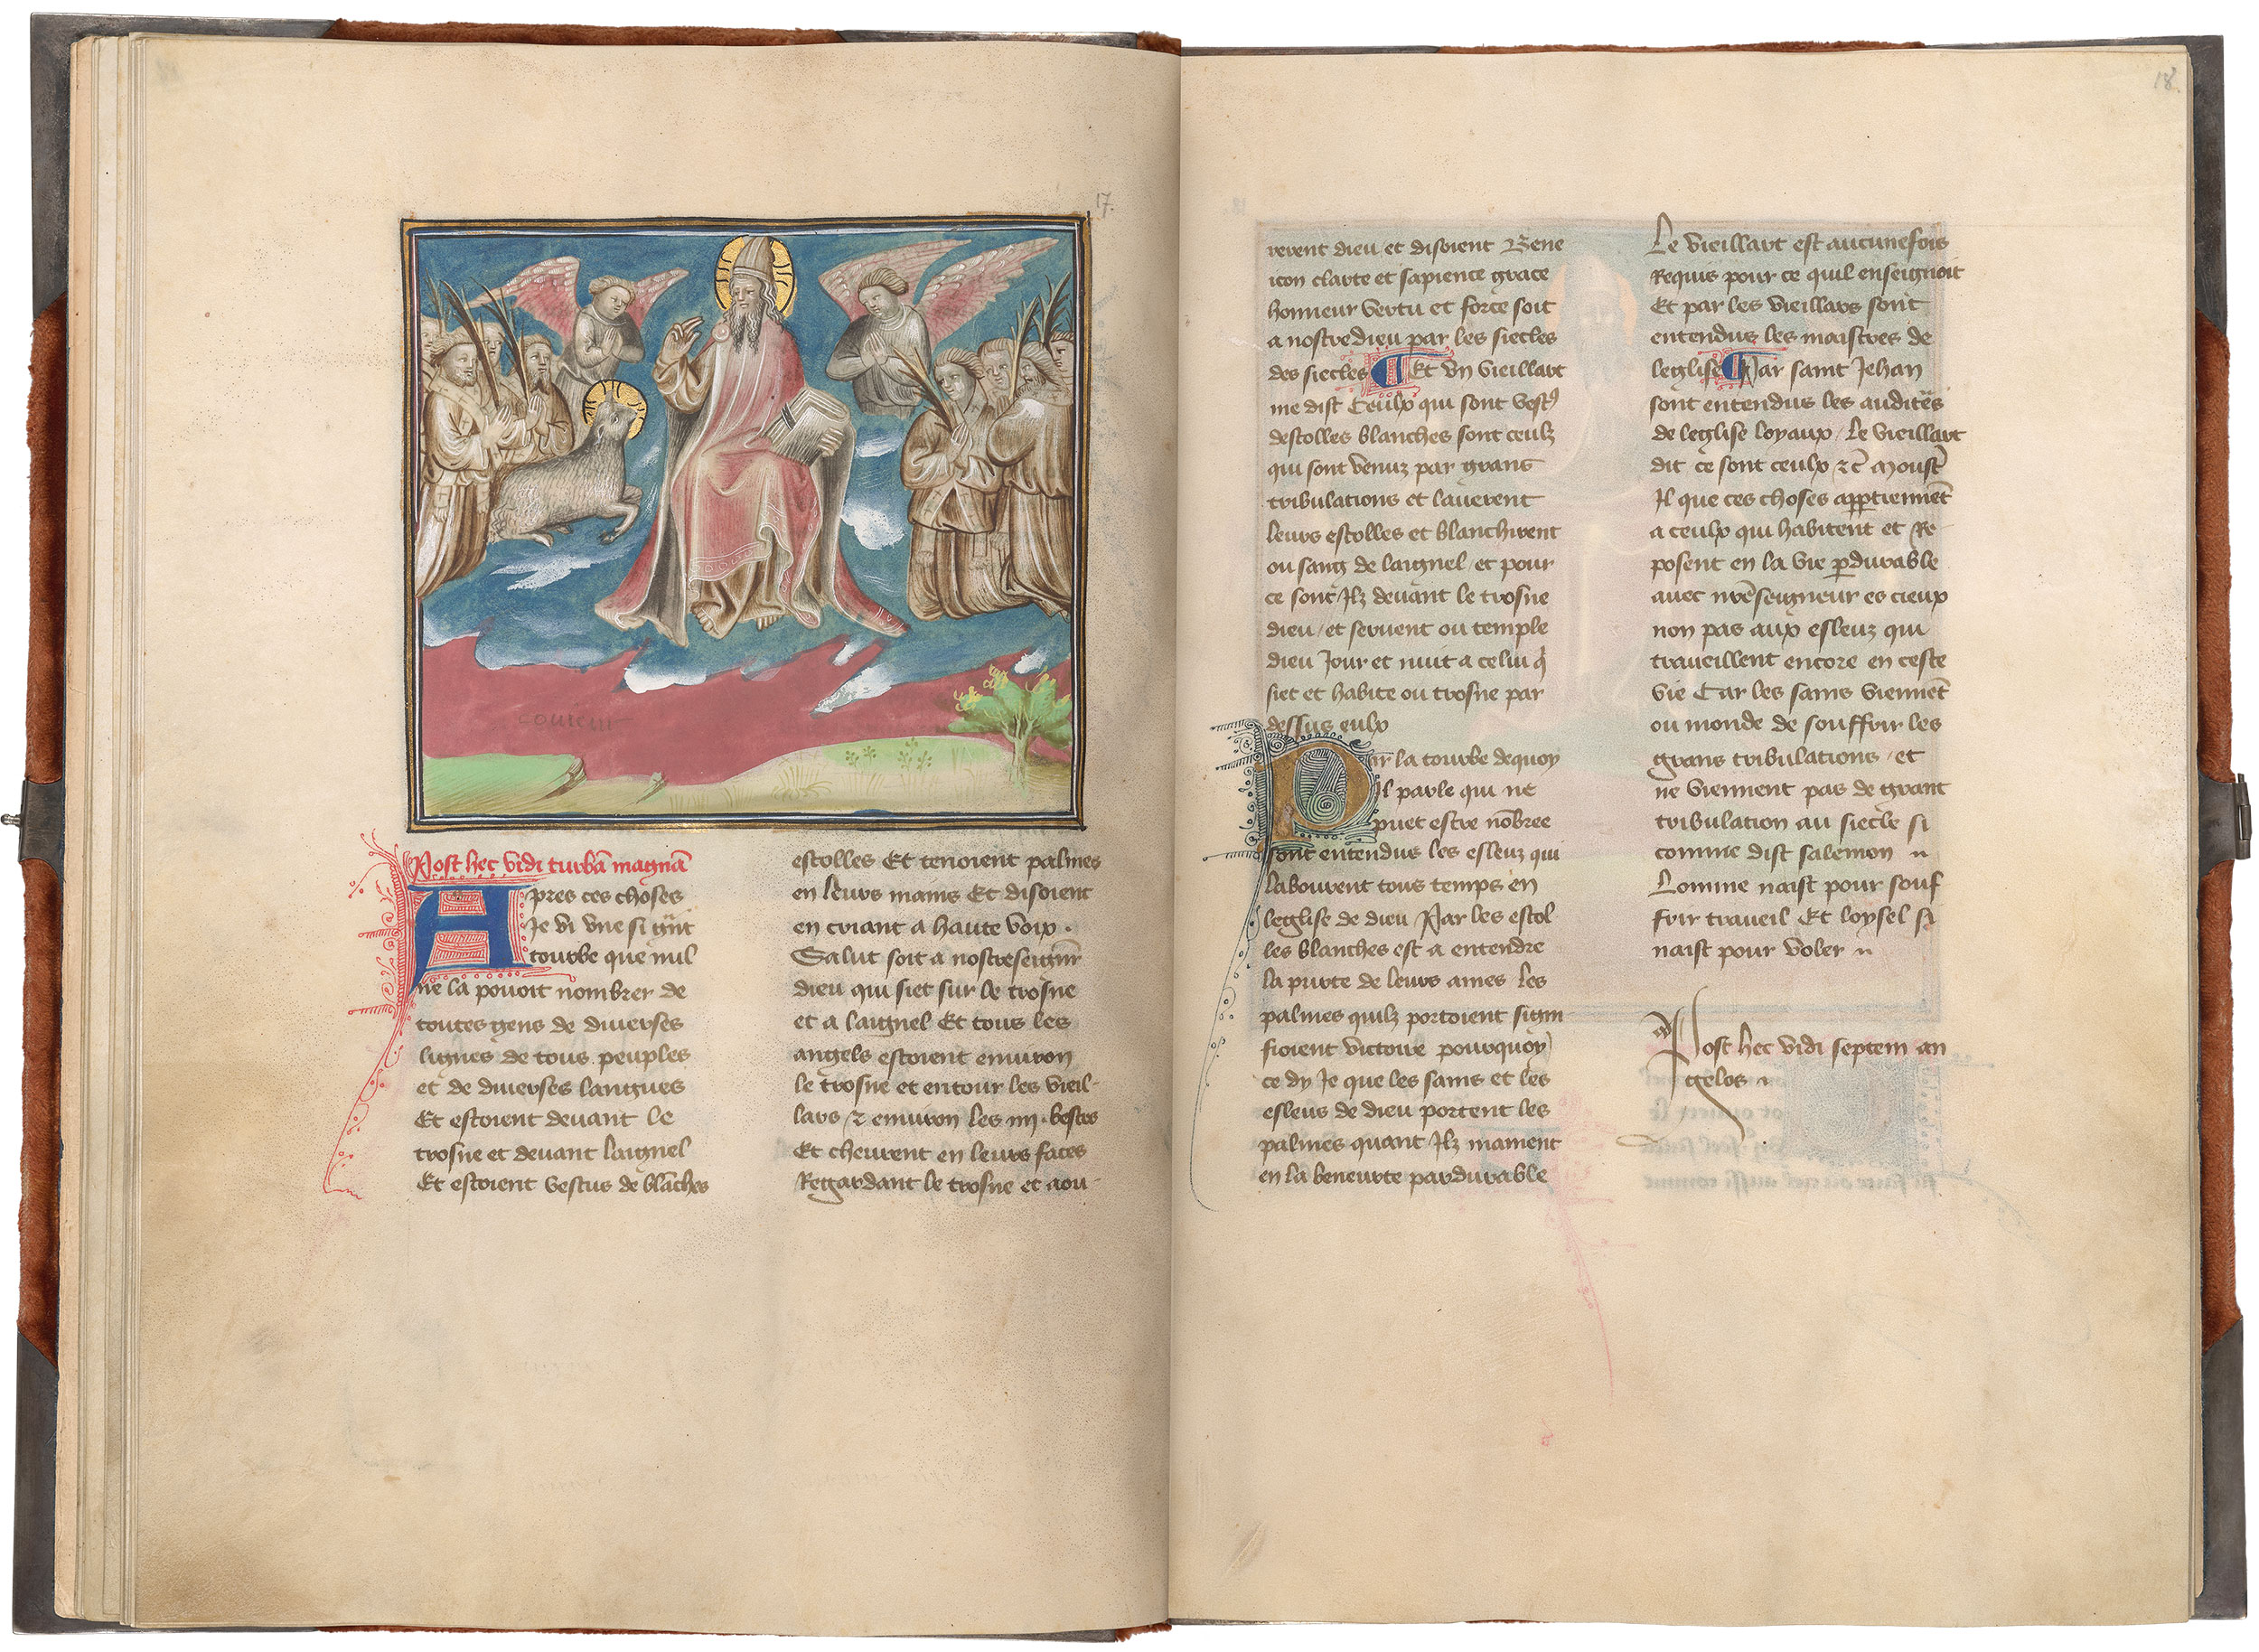 17.
couleur
Post hec vidi turbā magnā
Apres ces choses
Je vi vne si gñt
tourbe que nul
ne la pouoit nombrer de
toutes gens de diuerses
lignes de tous peuples
et de diuerses langues
Et estoient deuant le
trosne et deuant laignel
Et estoient vestus de blāches
estolles Et tenoient palmes
en leurs mains Et disoient
en criant a haute voix .
Salut soit a nostreseignr̄
dieu qui siet sur le trosne
et a laignel Et tous les
angels estoient enuiron
le trosne et entour les vieil-
lars ⁊ enuiron les iiij. bestes
Et cheurent en leurs faces
Regardant le trosne et aou-
18.
rerent dieu et disoient Bene
icon clarte et sapience grace
honneur vertu et force soit
a nostredieu par les siecles
des siecles ¶ Et vn vieillart
me dist Ceulx qui sont vestꝰ
destolles blanches sont ceulz
qui sont venuz par grans
tribulations et lauerent
leurs estolles et blanchirent
ou sang de laignel / et pour
ce sont Ilz deuant le trosne
dieu / et seruent ou temple
dieu Jour et nuit a celui q̄
siet et habite ou trosne par
dessus eulx
Par la tourbe dequoy
il parle qui ne
puet estre nōbree
sont entendus les esleuz qui
labourent tous temps en
leglise de dieu / Par les estol
les blanches est a entendre
la purte de leurs ames Les
palmes quilz portoient signi
fioient victoire pourquoy
ce dy Je que les sains et les
esleus de dieu portent les
palmes quant Ilz mainent
en la beneurte pardurable
Le vieillart est aucunefois
Requis pour ce quil enseignoit
Et par les vieillars sont
entendus les maistres de
leglise ¶ Par saint Jehan
sont entendus les auditēs
de leglise loyaux / Le vieillart
dit ce sont ceulx ⁊c̄ Moust̄
Il que ces choses appartiennēt
a ceulx qui habitent et Re-
posent en la vie ꝑdurable
auec nr̄eseigneur es cieux
non pas aux esleuz qui
traueillent encore en ceste
vie Car les sains viennēt
ou monde de souffrir les
grans tribulations / et
ne viennent pas de grant
tribulation au siecle si
comme dist salemon
Lomme naist pour souf
frir traueil Et loysel si
naist pour voler
Post hec vidi septem an
gelos